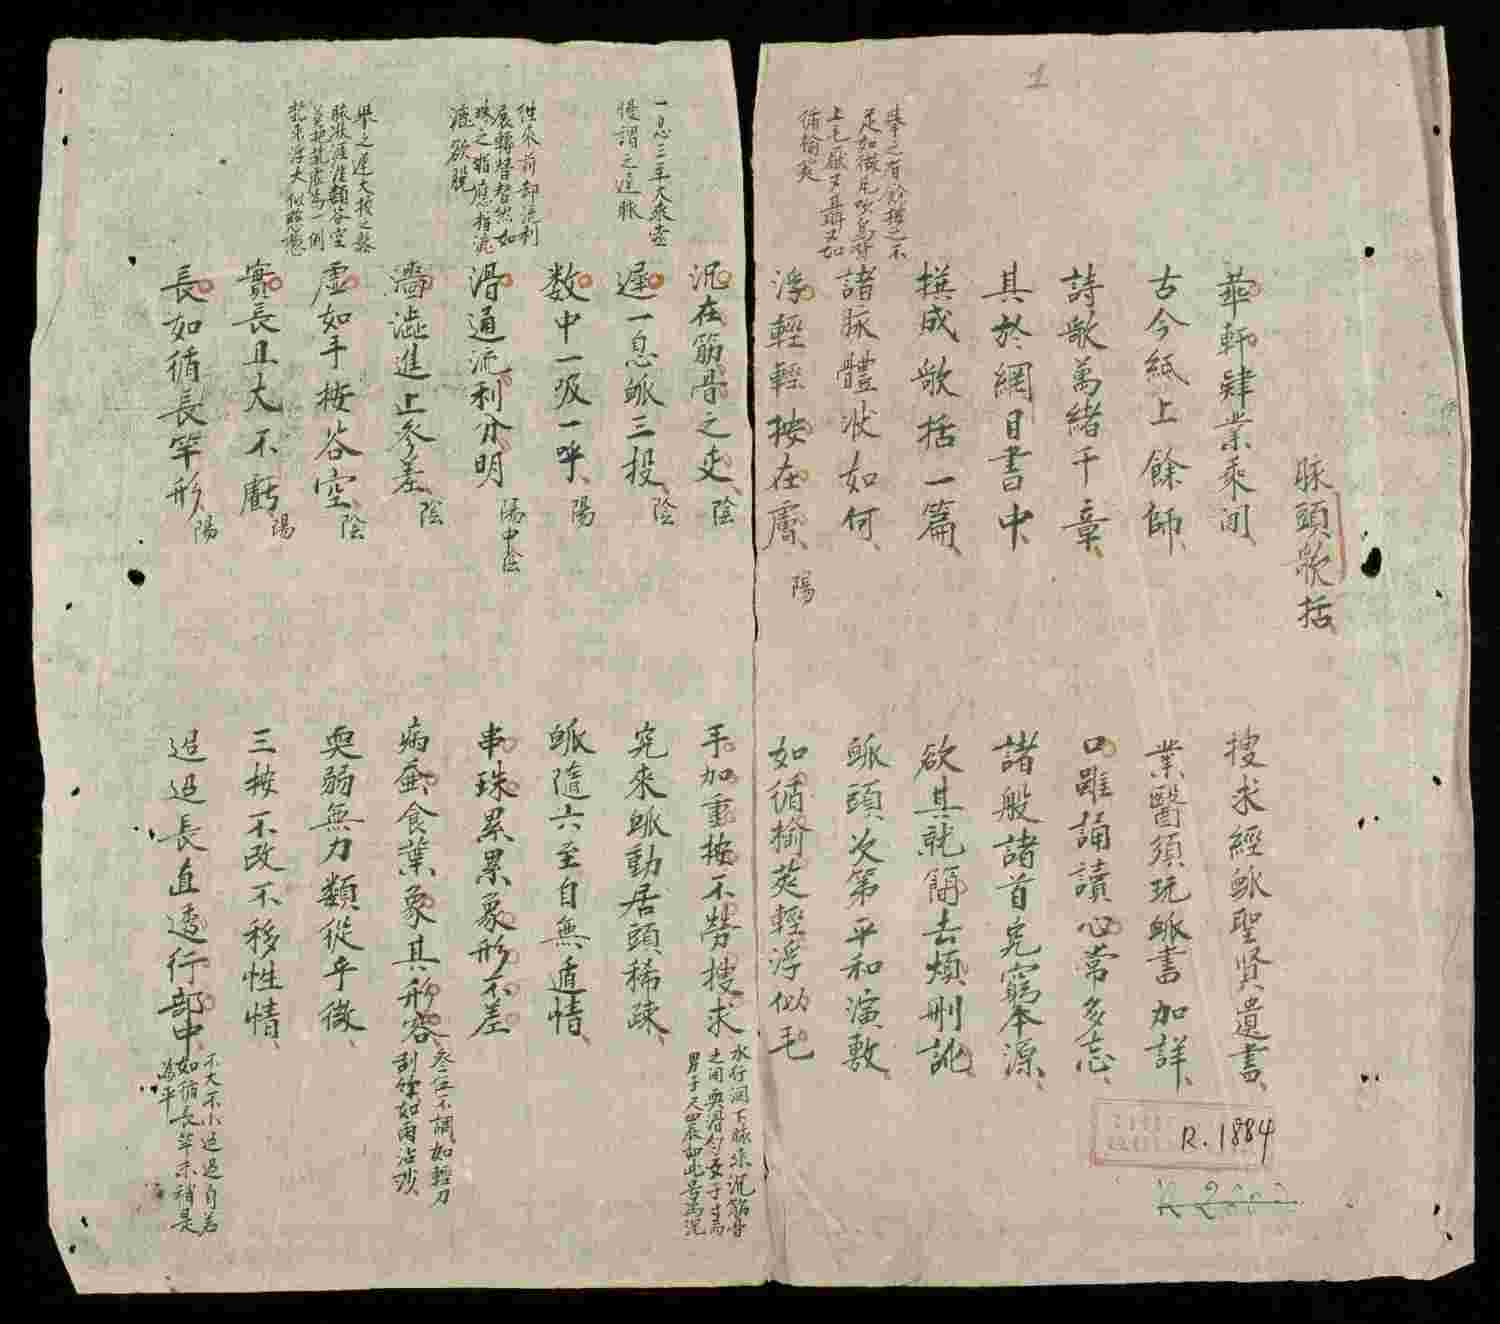 1
脉頭歌括
華軒肄業乘间
搜求經脈聖賢遺書
古今紙上餘師
業醫須玩脈書加詳
詩歌萬緒千章
口雖誦讀心常多忘
其於綱目書中
諸般諸首究窮本源
撰成歌括一篇
欲其就簡去煩刪訛
諸脉體狀如何
脈頭次第平和演敷
舉之有餘按之不
足如微風吹鳥背
上毛厭厭聶聶又如
循榆莢
浮輕輕按在膚
陽
如循榆莢輕浮似毛
沉在筋骨之边
陰
手加重按不勞搜求
水行润下脉來沉筋骨
之间耎滑匀女子寸而
男子尺四辰如此号為沉
一息三至大乘壹
慢謂之遲脉
遲一息脈三投
陰
究來脈動居頭稀疎
数中一吸一呼
陽
脈隨六至自無遁情
往來前却流利
展轉替替然如
珠之替應指流
漉欲脱
滑通流利分明
陽中陰
串珠累累象形不差
濇澁進上参差
陰
病蚕食葉象其形容
叄伍不調如輕刀
刮竹如雨沾沙
舉之遲大按之鬆
脉狀涯涯類谷空
虛如手按谷空
陰
耎弱無力類從乎微
實長且大不虧
陽
三按不改不移性情
長如循長竿形
陽
迢迢長直透行部中
不大不小迢迢自若
如循長竿末稍是
為平
R.1884